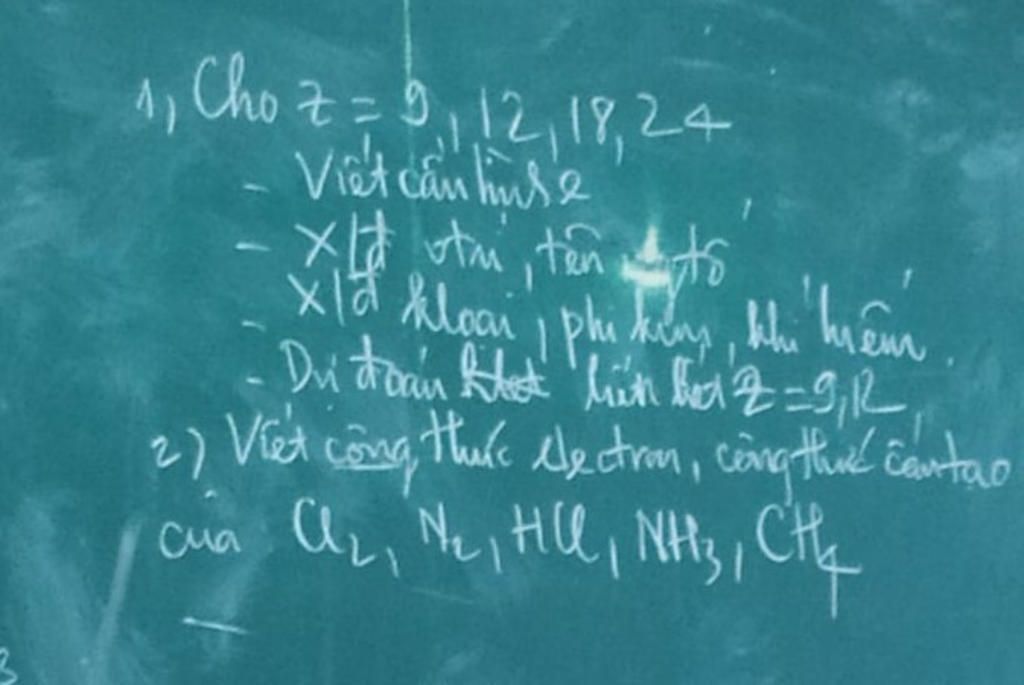 1, Cho Z = 9, 12, 18, 24
- Viết cấu hình e
- X/đ vtrí, tên ntố
- X/đ kloại, phi kim, khí hiếm.
- Dự đoán liên kết Z = 9, 12
2) Viết công thức electron, công thức cấu tạo
của Cl₂, N₂, HCl, NH₃, CH₄
3